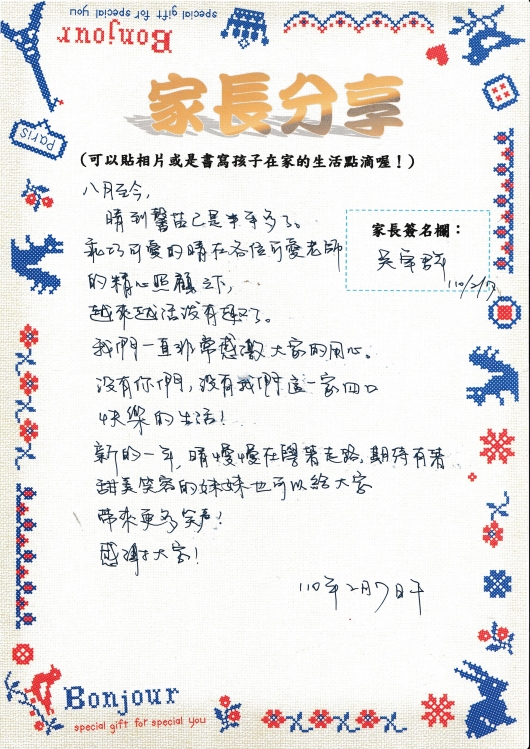 special gift for special you
Bonjour
Paris
家長分享
(可以貼相片或是書寫孩子在家的生活點滴喔！)
家長簽名欄：
110/2/7
八月至今，
晴到馨苗已是半年多了。
乖巧可愛的晴在各位可愛老師
的精心照顧之下，
越來越活沒有趣了。
我們一直非常感激大家的用心。
沒有你們，沒有我們這一家四口
快樂的生活！
新的一年，晴慢慢在學著走路，期待有著
甜美笑容的妹妹也可以給大家
帶來更多笑聲！
感謝大家！
110年2月7日午
Bonjour
special gift for special you